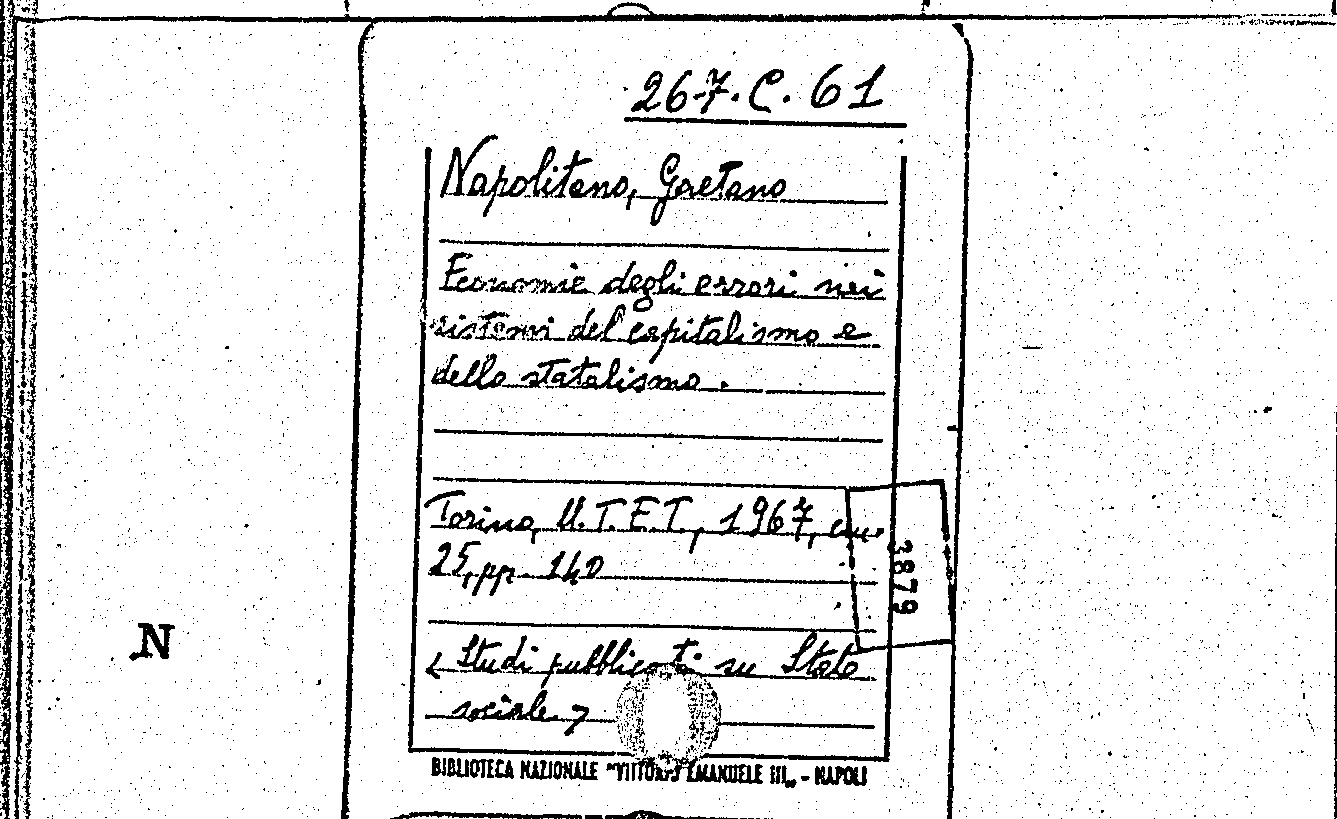 267.C.61
Napolitano, Gaetano
Economie degli errori nei
sistemi del capitalismo e
dello statalismo.
Torino, U.T.E.T., 1967, cm.
25, pp. 140
3879
N
< Studi pubblicati su Stato
sociale >
BIBLIOTECA NAZIONALE "VITTORIO EMANUELE III„ - NAPOLI